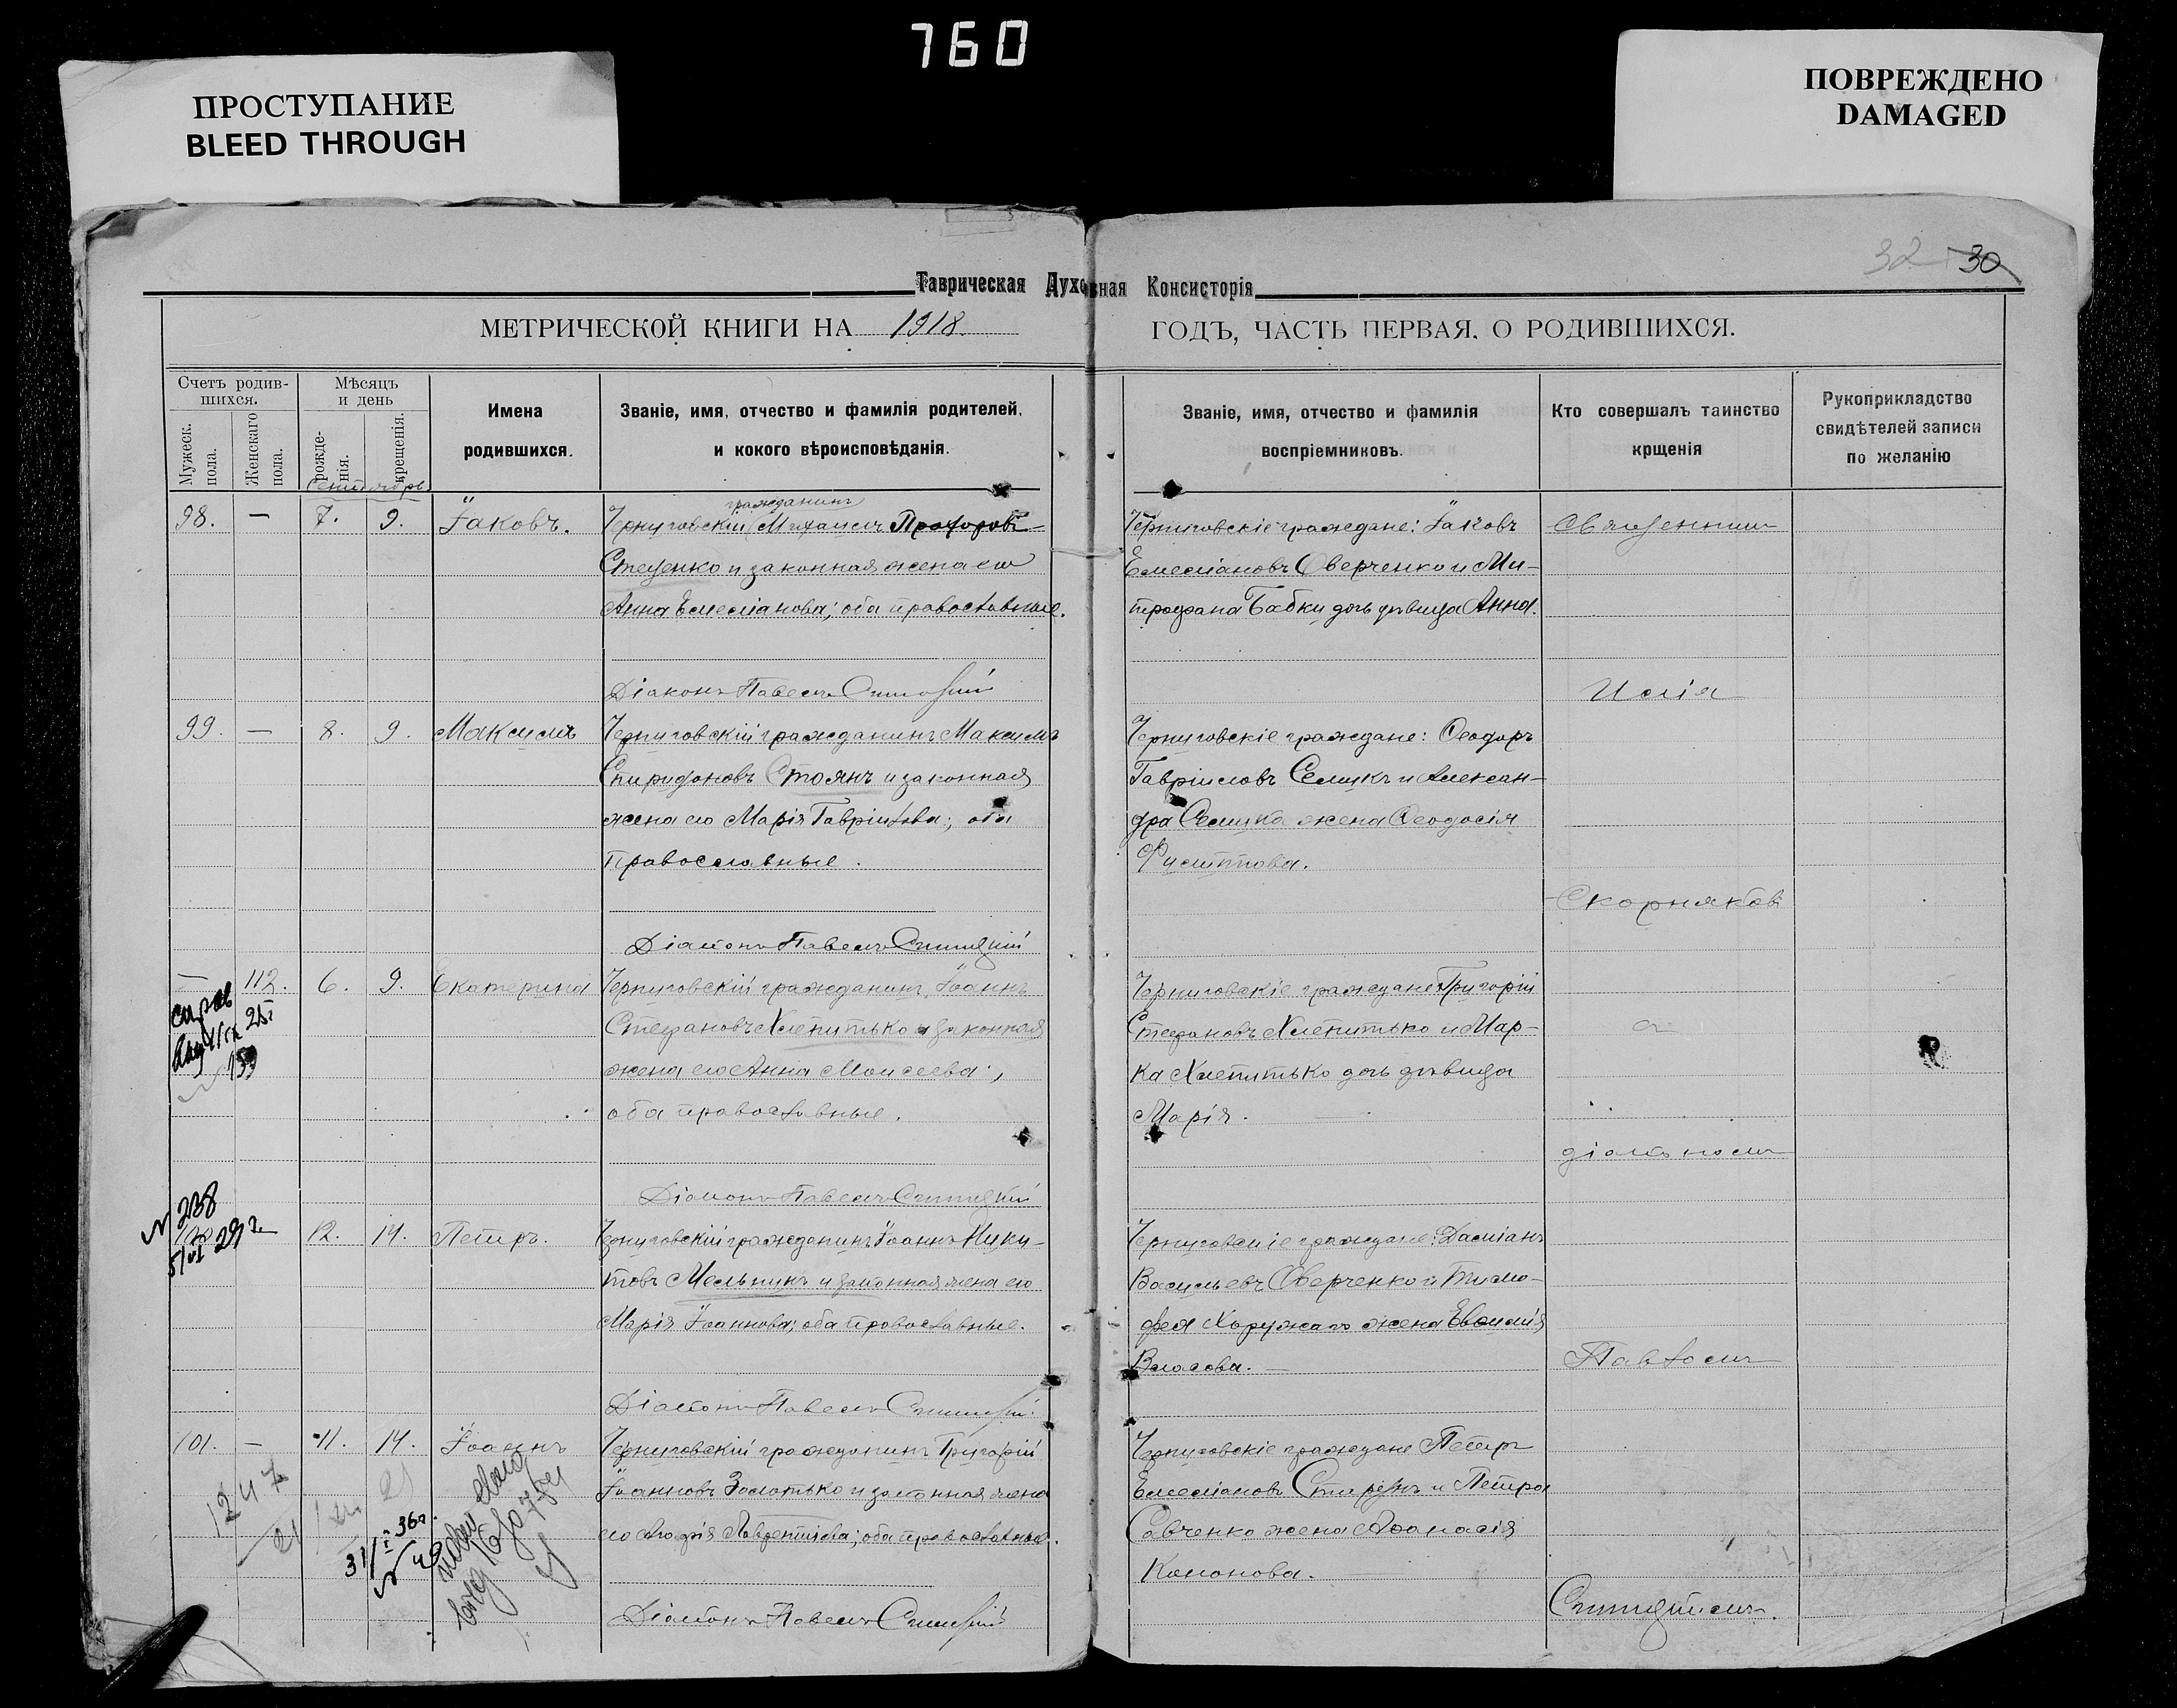 760
ПРОСТУПАНИЕ
BLEED THROUGH
ПОВРЕЖДЕНО
DAMAGED
32 30
Таврическая Духовная Консисторія
МЕТРИЧЕСКОЙ КНИГИ НА 1918 ГОДЪ, ЧАСТЬ ПЕРВАЯ, О РОДИВШИХСЯ.
Счетъ родив-
шихся.
Мужеск. пола.
Женскаго пола.
Мѣсяцъ
и день
рожде-
нія.
крещенія.
Имена
родившихся.
Званіе, имя, отчество и фамилія родителей,
и кокого вѣроисповѣданія.
Званіе, имя, отчество и фамилія
воспріемниковъ.
Кто совершалъ таинство
крщенія
Рукоприкладство
свидѣтелей записи
по желанію
Сентябрь
98. — 7. 9. Іаковъ.
гражданинъ
Черниговскій Михаилъ Прохоровъ
Стеценко и законная жена его
Анна Емеліанова; оба православные.
Діаконъ Павелъ
Черниговскіе граждане: Іаковъ
Емеліановъ Оверченко и Ми-
трофана Бабки дочь дѣвица Анна.
Священникъ
Илія
99. — 8. 9. Максимъ
Черниговскій гражданинъ Максимъ
Спиридоновъ Стоянъ и законная
жена его Марія Гавріилова; оба
православные.
Діаконъ Павелъ
Черниговскіе граждане: Ѳеодоръ
Гавріиловъ Селикъ и Алексан-
дра Селика жена Ѳеодосія
Филиппова.
Скорняковъ
— 112. 6. 9. Екатерина
Черниговскій гражданинъ Іоаннъ
Стефановъ Хлепитько и законная
жена его Анна Моисеева;
оба православные.
Діаконъ Павелъ
Черниговскіе граждане: Григорій
Стефановъ Хлепитько и Мар-
ка Хлепитько дочь дѣвица
Марія.
съ
діакономъ
25
159
№ 238
100 12. 14. Петръ.
29 г.
Черниговскій гражданинъ Іоаннъ Ники-
товъ Мельникъ и законная жена его
Марія Іоаннова; оба православные.
Діаконъ Павелъ
Черниговскіе граждане: Даміанъ
Васильевъ Оверченко и Тимо-
фея Хоружаго жена Евѳимія
Власова.
Павломъ
101. — 11. 14. Іоаннъ
Черниговскій гражданинъ Григорій
Іоанновъ Золотько и законная жена
его Агафія Лаврентіева; оба православные.
Діаконъ Павелъ
Черниговскіе граждане Петръ
Емеліановъ и Петра
Савченко жена Аѳанасія
Кононова.
1247
21
36 г.
31/I
№ 49